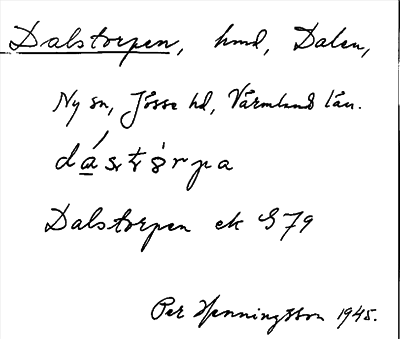 Dalstorpen, hmd, Dalen,
Ny sn, Jösse hd, Värmlands län.
Dalstorpen ek S 79
Per Henningsson 1945.